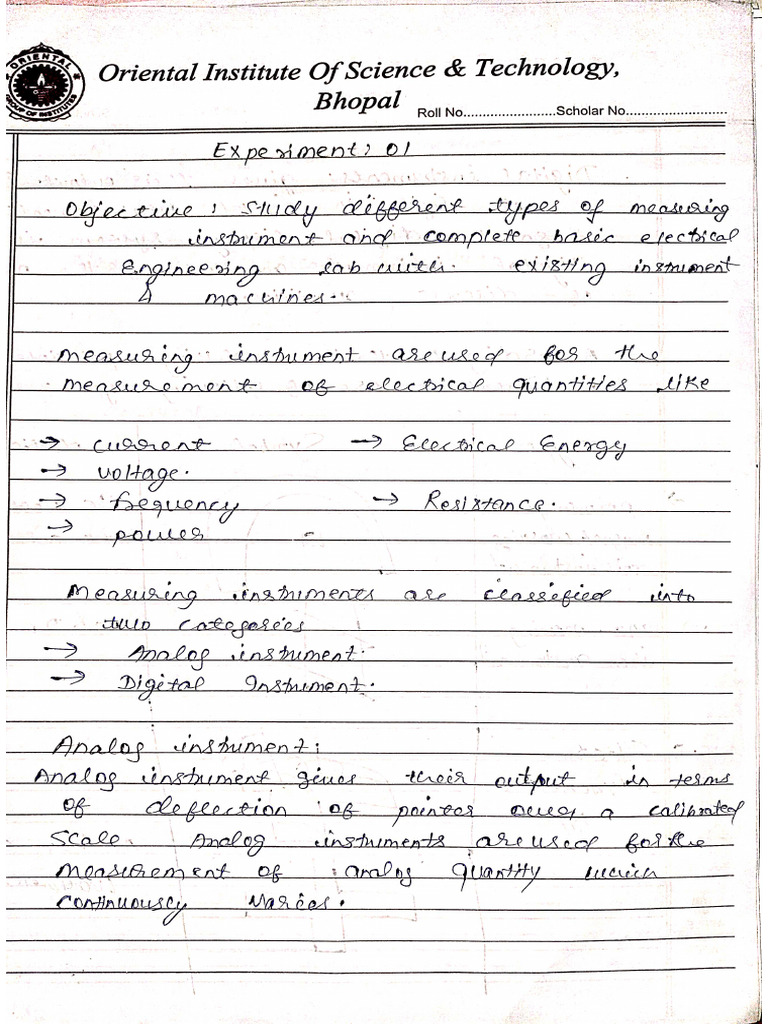 ORIENTAL
GROUP OF INSTITUTES
Oriental Institute Of Science & Technology,
Bhopal
Roll No........................Scholar No..........................
Experiment: 01
Objective: Study different types of measuring
instrument and complete basic electrical
Engineering lab with. existing instrument
& machines.
Measuring instrument are used for the
measurement of electrical quantities like
→ current → Electrical Energy
→ voltage.
→ frequency → Resistance.
→ power
Measuring instruments are classified into
two categories
→ Analog instrument.
→ Digital Instrument.
Analog instrument:
Analog instrument gives their output in terms
of deflection of pointer over a calibrated
scale. Analog instruments are used for the
measurement of analog quantity which
continuously varies.